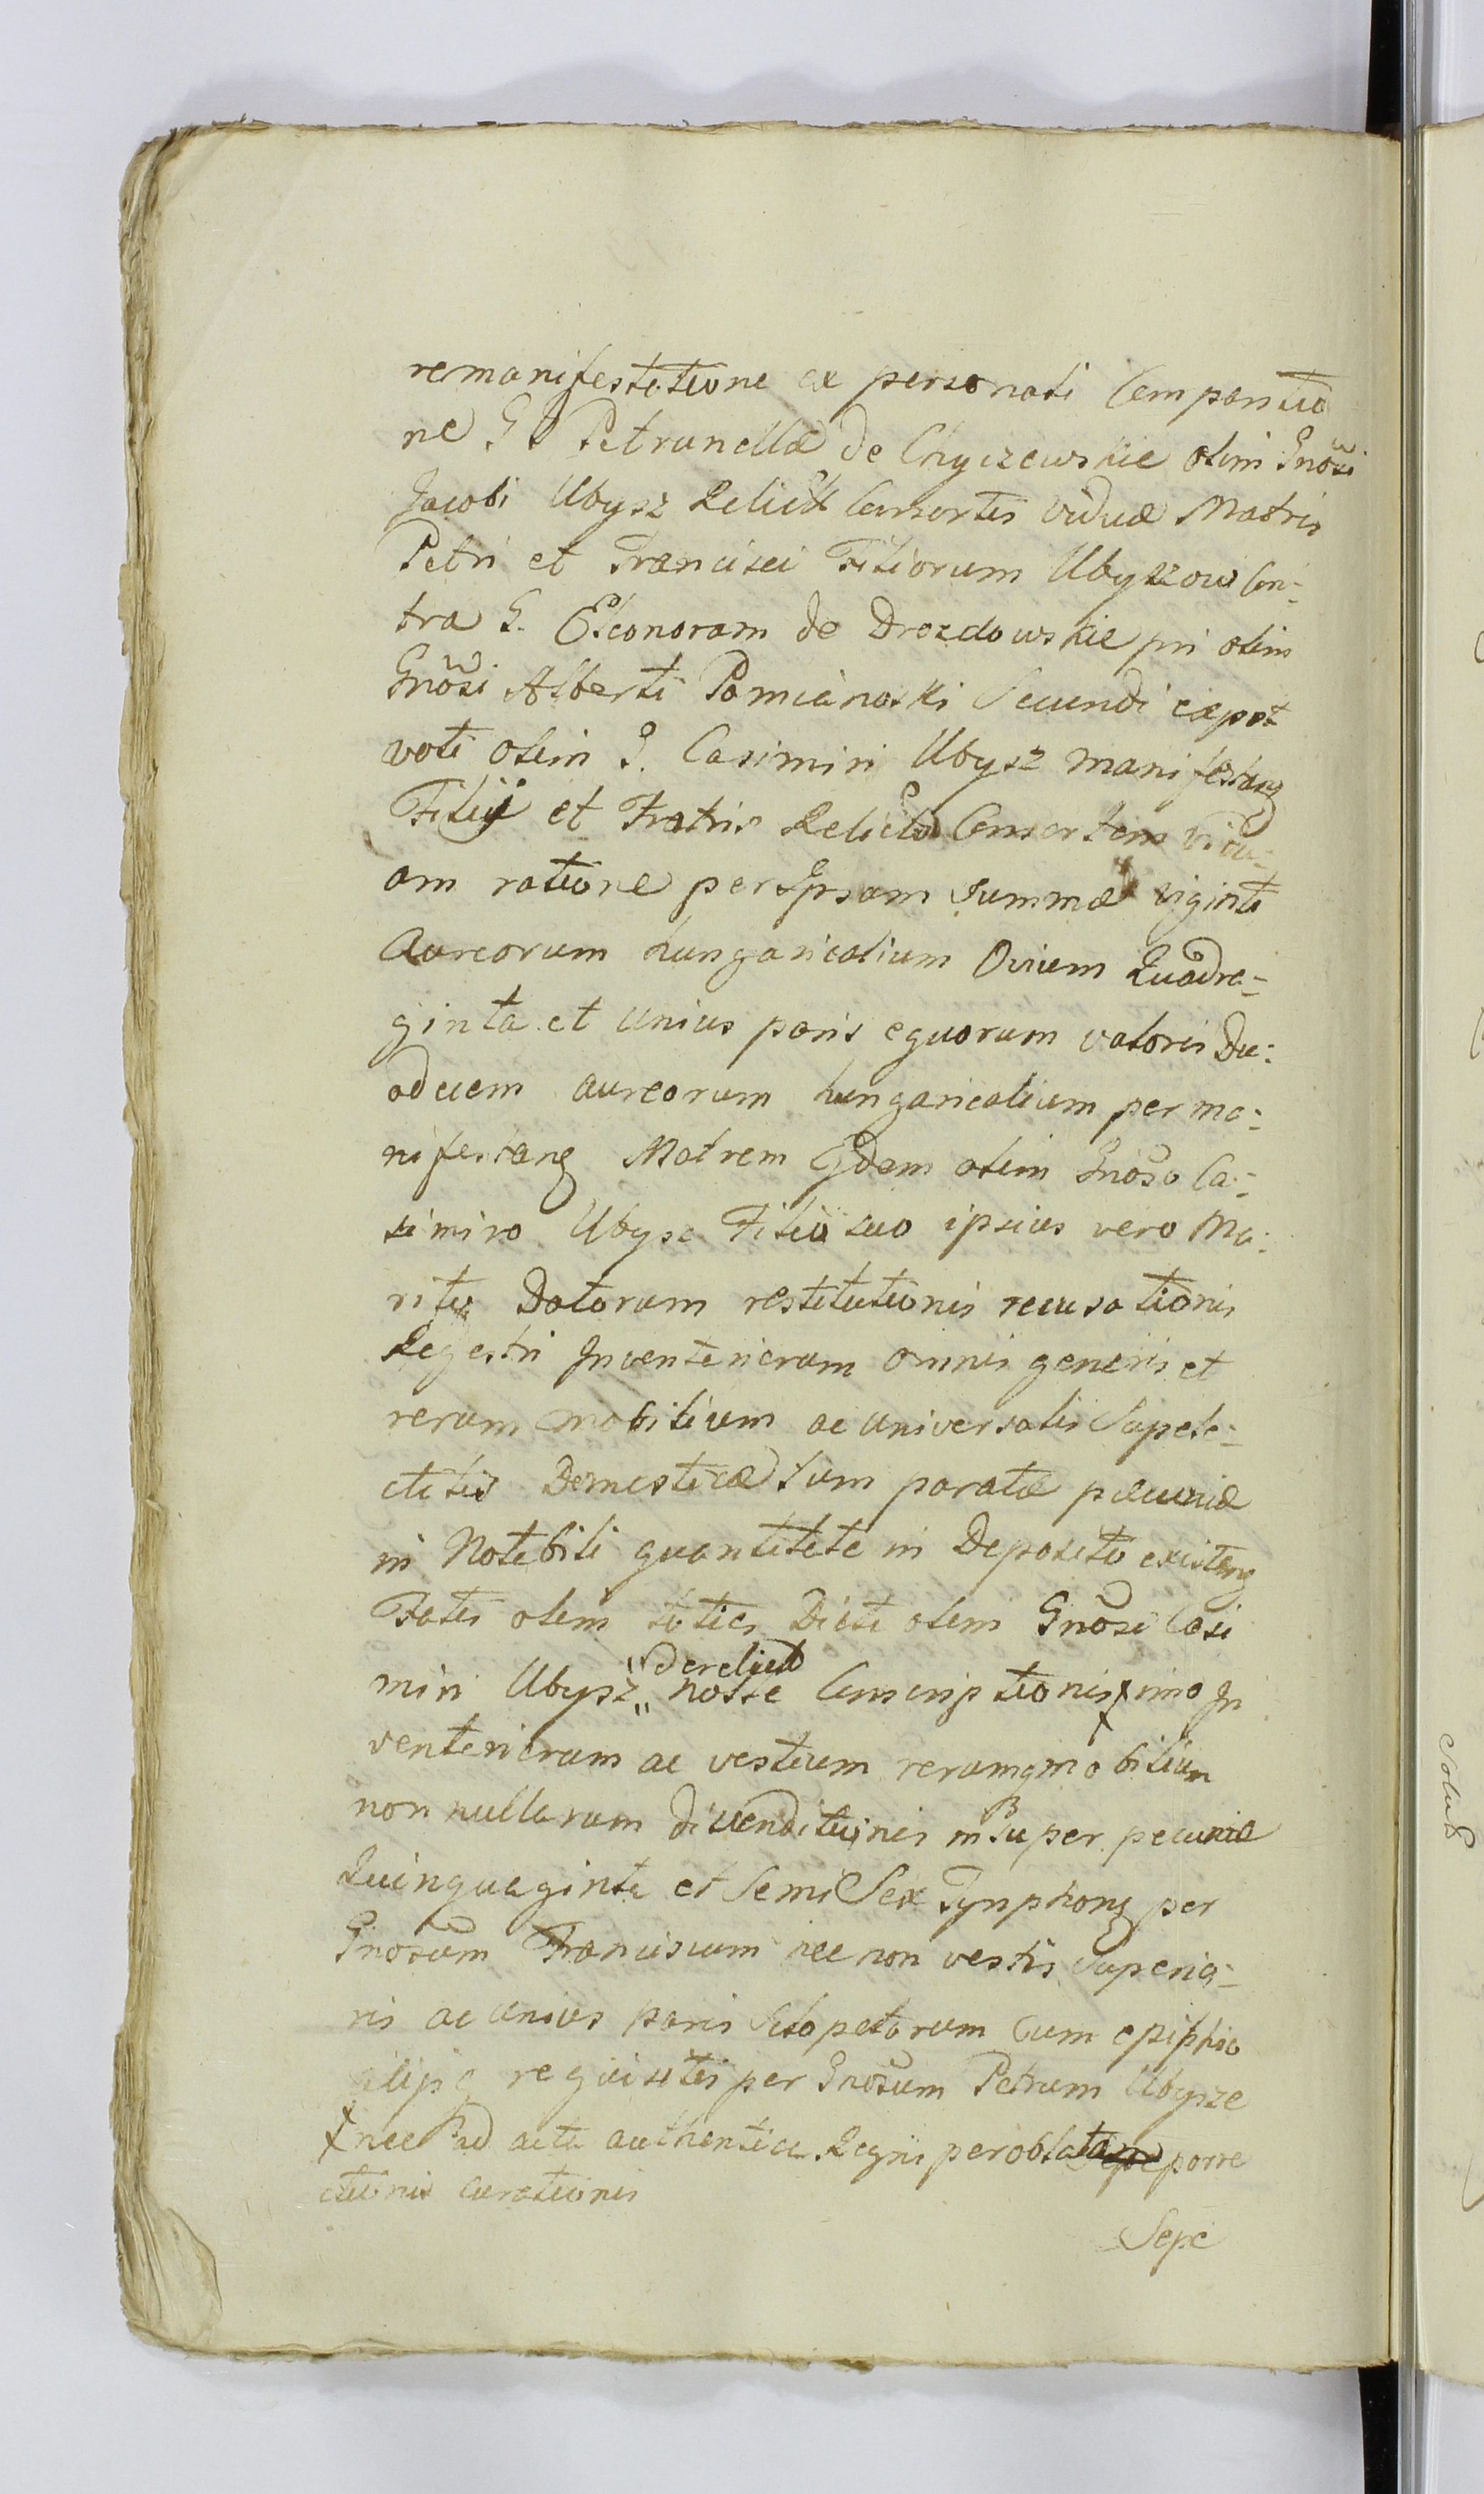 remanifestatione ex personali Comparitio
ne G. Petrunellæ de Chyczewskie olim Gnõsi
Jacobi Ubysz Relictæ Consortis viduæ Matris
Petri et Francisci Filiorum Ubyszow Con-
tra G. Eleonoram de Drozdowskie pri olim
Gnõsi Alberti Pomianoski Secundi expost
voti olim G. Casimiri Ubysz manifestang
Filij et Fratris Relictã Consortem vidu-
am ratione per Ipsam Summæ viginti
Aureorum hungaricalium Ovium Quadra-
ginta et unius paris equorum valoris Du-
odecem aureorum hungaricalium per ma-
nifestang Matrem Eidem olim Gnõso Ca-
simiro Ubysz Filio suo ipsius vero Ma-
rito Datorum restitutionis recusationis
Regestri Inventeriorum omnis generis et
rerum mobilium ac universalis Supele-
ctilis Domesticæ tum paratæ pecuniæ
in Notabili quantitate in Deposito existeng
Fatis olim toties Dicti olim Gnõsi Casi
miri Ubysz " derelict
nosse Conscriptionis x imo In
venteriorum ac vestium rerumq mobilium
non nullarum divenditionis in Super pecuniæ
Quinquaginta et Semi Sex Tynphong per
Gnõsum Franciscum nec non vestis Superio-
ris ac unius paris Sclopetorum Cum ephippio
alijsq requisitis per Gnõsum Petrum Ubysze
x nec ad acta authentica Regni per oblatam porre
ctionis Curationis
Sepe